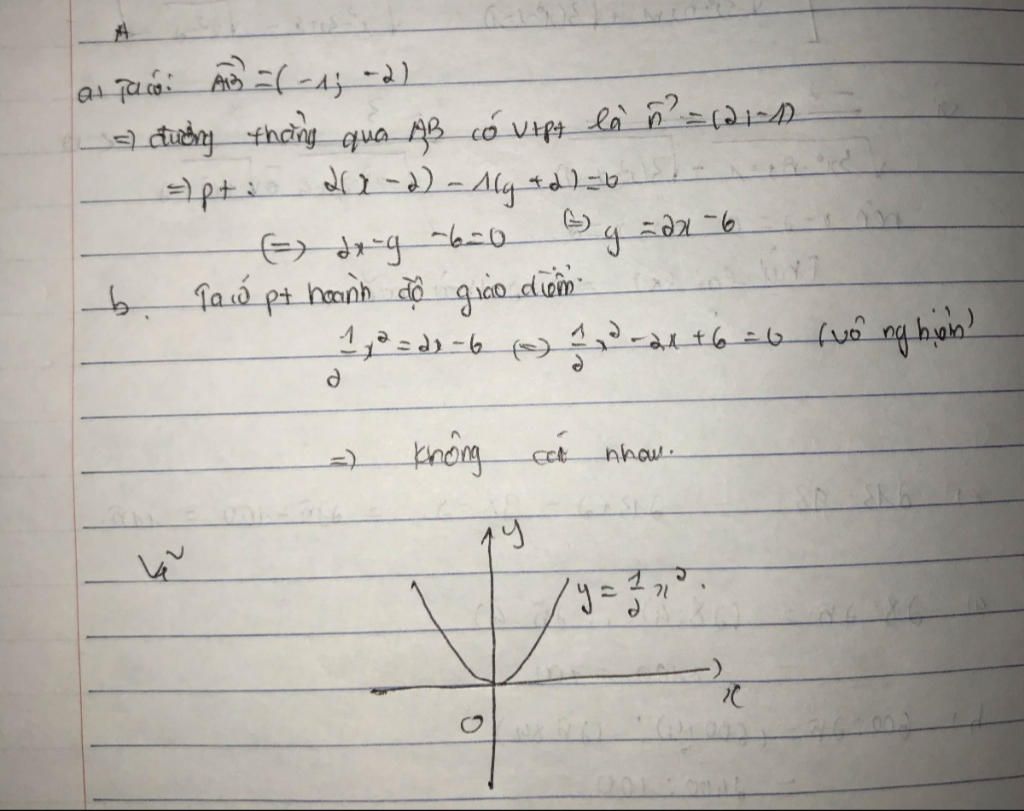 A
a, Ta có: AB→ = (-1; -2)
=> đường thẳng qua AB có vtpt là n→ = (2; -1)
=> pt: 2(x - 2) - 1(y + 2) = 0
(=) 2x - y - 6 = 0 (=) y = 2x - 6
b. Ta có pt hoành độ giao điểm:
1/2 x² = 2x - 6 (=) 1/2 x² - 2x + 6 = 0 (vô nghiệm)
=> không cắt nhau.
Vẽ
y
y = 1/2 x².
x
O